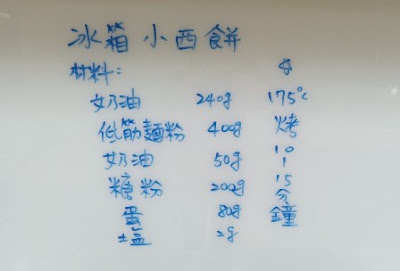 冰箱小西餅
材料:
奶油 240g
低筋麵粉 400g
奶油 50g
糖粉 200g
蛋 80g
塩 2g
175℃
烤
10
|
15
分
鐘